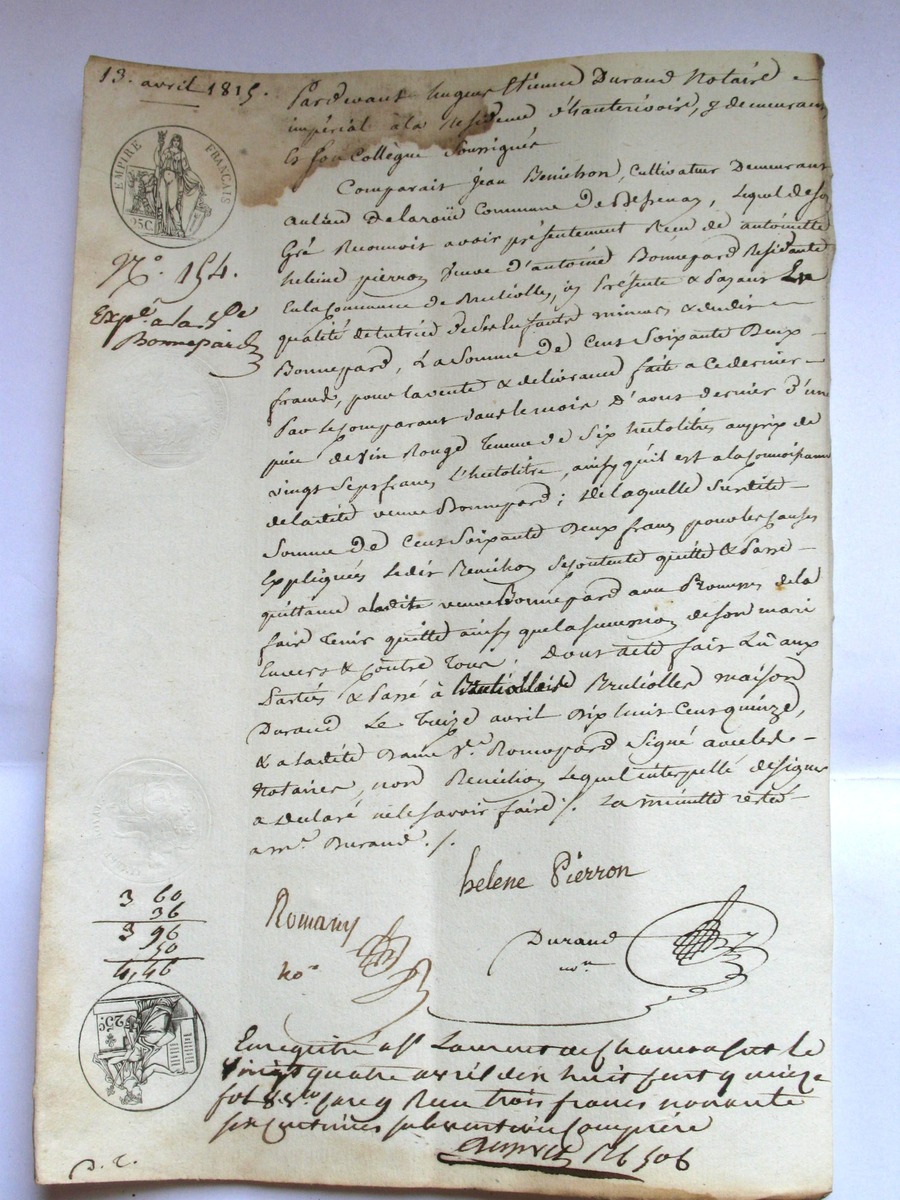 13. avril 1815.
Pardevant hugues Etienne Durand Notaire
impérial à la Residence d'hauterivoire, y demeurant
et son Collègue Soussignés
EMPIRE FRANÇAIS
25C
Comparait Jean Benichon, Cultivateur Demeurant
au lieu De laroüe Commune de Bessenay, Lequel de son
Gré Reconnoit avoir présentement Recu de antoinette
helene pierron veuve d'antoine Bonnepard Residante
En la Commune de Brulliolles, icy Présente & Payant En
qualité de tutrice de Ses Enfants mineurs & dudit
Bonnepard, La Somme De Cent Soixante Deux
francs, pour la vente & delivrance faite a Ce dernier
Par le Comparant dans le mois D'aout dernier d'une
pièce de vin Rouge Tenue de Six hectolitres au prix de
vingt Sept francs l'hectolitre, ainsy qu'il est a la Connoissance
de la dite veuve Bonnepard; De laquelle Susdite
Somme De Cent Soixante Deux francs pour les Causes
Expliquées Ledit Benichon Se Contente quitte & Passe
quittance a ladite veuve Bonnepard avec Promesse de la
faire Tenir quitte ainsy que la succession de son mari
Envers & Contre Tous. Dont acte fait Lû aux
Parties & Passé à Brulliolles maison
Durand Le Treize avril Dix huit Cent quinze,
& a ladite Dame Ve. Bonnepard Signé avec les
Notaires, non Benichon Lequel interpellé de signer
a declaré ne le savoir faire ./. La minutte restée
a me. Durand ./.
No. 154.
Expé. a la De
Bonnepard
3 60
36
3 96
50
4,46
25C
helene Pierron
Romany
no.re
Durand
no.re
Enregistré a St Laurent de Chamousset le
vingt quatre avril dix huit cent quinze
fol 85 vo case 9 Recu trois francs nonante
six centimes subvention Comprise
D. C.